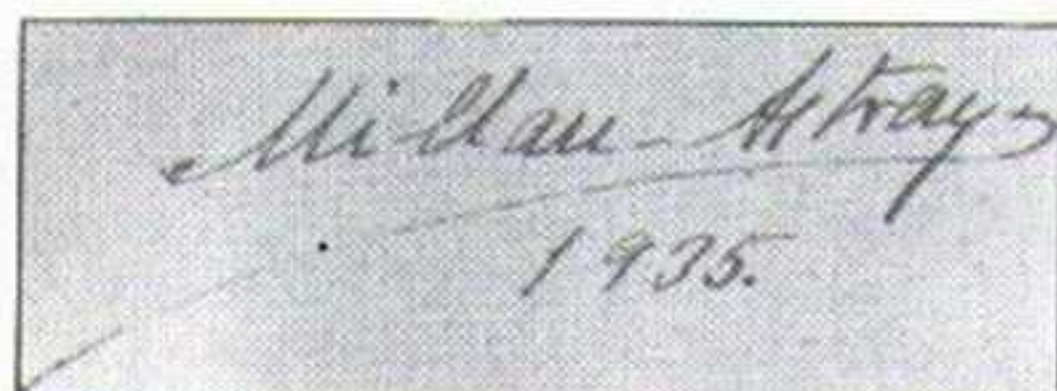 Millan-Astray
1935.